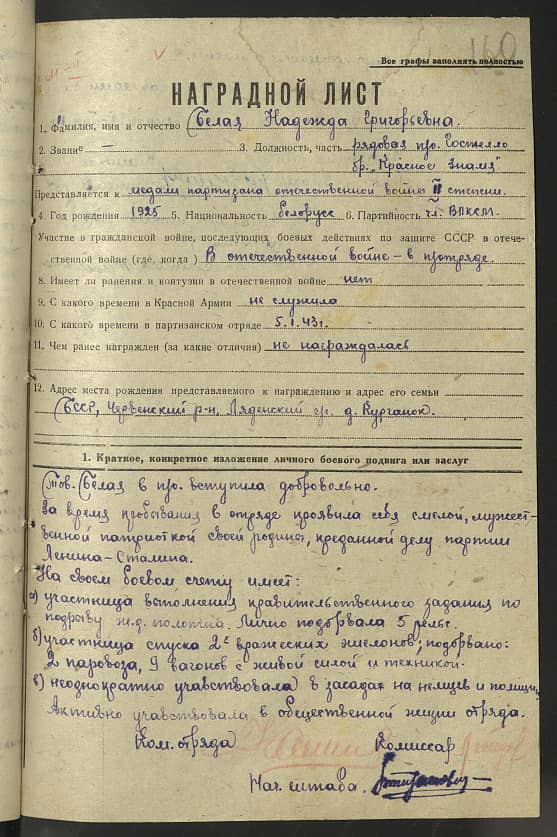 160
Все графы заполнять полностью
НАГРАДНОЙ ЛИСТ
1. Фамилия, имя и отчество Белая Надежда Григорьевна.
2. Звание — 3. Должность, часть рядовая п/о. Гостелло
бр. „Красное Знамя"
Представляется к медали партизана отечественной войны II степени.
4. Год рождения 1925 5. Национальность белорусс 6. Партийность чл. ВЛКСМ.
Участие в гражданской войне, последующих боевых действиях по защите СССР в отече-
ственной войне (где, когда) В отечественной войне – в п/отряде.
8. Имеет ли ранения и контузии в отечественной войне нет
9. С какого времени в Красной Армии не служила
10. С какого времени в партизанском отряде 5.I.43г.
11. Чем ранее награжден (за какие отличия) не награждалась
12. Адрес места рождения представляемого к награждению и адрес его семьи
БССР, Червенский р-н. Ляденский с/с. д. Курганок.
1. Краткое, конкретное изложение личного боевого подвига или заслуг
Тов. Белая в п/о. вступила добровольно.
За время пребывания в отряде проявила себя смелой, мужест-
венной патриоткой своей родины, преданной делу партии
Ленина-Сталина.
На своем боевом счету имеет:
а) участница выполнения правительственного задания по
подрыву ж.д. полотна. Лично подорвала 5 рельс.
б) участница спуска 2х вражеских эшелонов; подорвано:
2 паровоза, 9 вагонов с живой силой и техникой.
в) неоднократно учавствовала в засадах на немцев и полицию
Активно учавствовала в общественной жизни отряда.
Ком. отряда Комиссар
Нач. штаба.